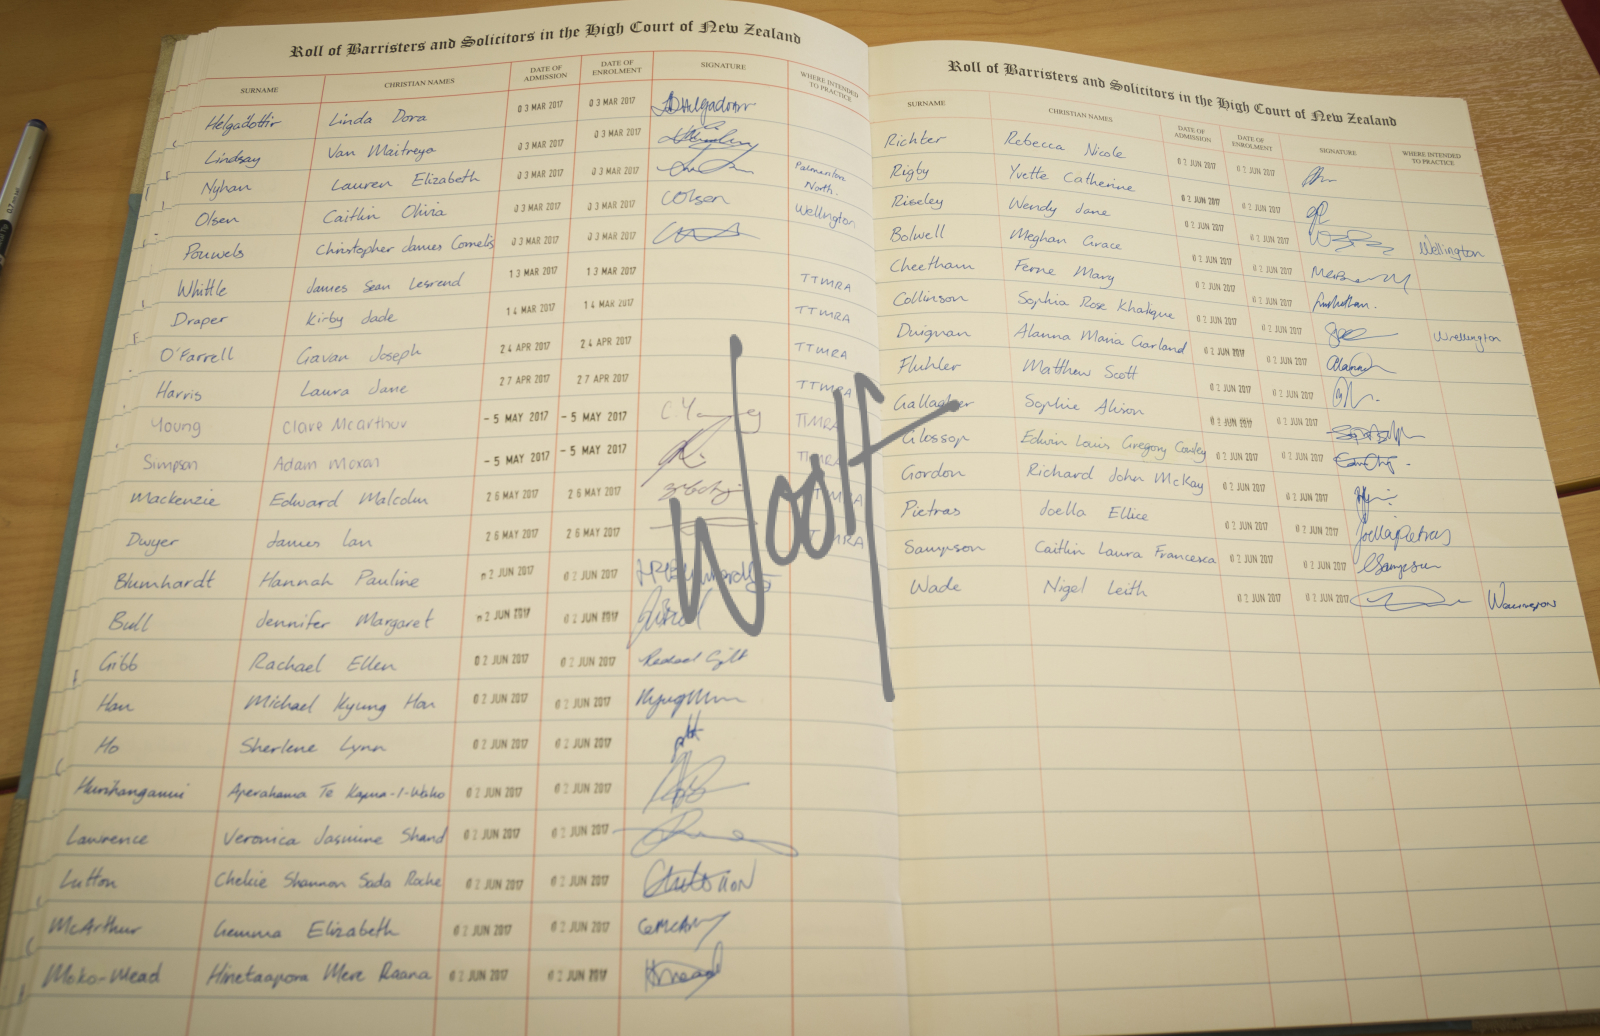 Roll of Barristers and Solicitors in the High Court of New Zealand
SURNAME CHRISTIAN NAMES DATE OF ADMISSION DATE OF ENROLMENT SIGNATURE WHERE INTENDED TO PRACTICE
Helgadóttir Linda Dora 03 MAR 2017 03 MAR 2017
Lindsay Van Maitreya 03 MAR 2017 03 MAR 2017
Nyhan Lauren Elizabeth 03 MAR 2017 03 MAR 2017 Palmerston North.
Olsen Caitlin Olivia 03 MAR 2017 03 MAR 2017 COlsen Wellington
Pouwels Christopher James Cornelis 03 MAR 2017 03 MAR 2017
Whittle James Sean 13 MAR 2017 13 MAR 2017 TTMRA
Draper Kirby Jade 14 MAR 2017 14 MAR 2017 TTMRA
O'Farrell Gavan Joseph 24 APR 2017 24 APR 2017 TTMRA
Harris Laura Jane 27 APR 2017 27 APR 2017 TTMRA
Young Clare McArthur -5 MAY 2017 -5 MAY 2017 TTMRA
Simpson Adam Moxon -5 MAY 2017 -5 MAY 2017 TTMRA
Mackenzie Edward Malcolm 26 MAY 2017 26 MAY 2017 TTMRA
Dwyer James Ian 26 MAY 2017 26 MAY 2017 TTMRA
Blumhardt Hannah Pauline 02 JUN 2017 02 JUN 2017
Bull Jennifer Margaret 02 JUN 2017 02 JUN 2017
Gibb Rachael Ellen 02 JUN 2017 02 JUN 2017
Han Michael Kyung Hon 02 JUN 2017 02 JUN 2017
Ho Sherlene Lynn 02 JUN 2017 02 JUN 2017
Hurihanganui Aperahama Te 02 JUN 2017 02 JUN 2017
Lawrence Veronica Jasmine Shand 02 JUN 2017 02 JUN 2017
Lutton Shannon Sada Roche 02 JUN 2017 02 JUN 2017
McArthur Gemma Elizabeth 02 JUN 2017 02 JUN 2017
Moko-Mead Hinetaapora Mere Raana 02 JUN 2017 02 JUN 2017
Woolf
Roll of Barristers and Solicitors in the High Court of New Zealand
SURNAME CHRISTIAN NAMES DATE OF ADMISSION DATE OF ENROLMENT SIGNATURE WHERE INTENDED TO PRACTICE
Richter Rebecca Nicole 02 JUN 2017 02 JUN 2017
Rigby Yvette Catherine 02 JUN 2017 02 JUN 2017
Riseley Wendy Jane 02 JUN 2017 02 JUN 2017 Wellington
Bolwell Meghan Grace 02 JUN 2017 02 JUN 2017
Cheetham Ferne Mary 02 JUN 2017 02 JUN 2017
Collinson Sophia Rose Khatique 02 JUN 2017 02 JUN 2017 Wellington
Duignan Alanna Maria Garland 02 JUN 2017 02 JUN 2017
Fluhler Matthew Scott 02 JUN 2017 02 JUN 2017
Gallagher Sophie Alison 02 JUN 2017 02 JUN 2017
Glossop Edwin Louis Gregory Cowley 02 JUN 2017 02 JUN 2017
Gordon Richard John McKay 02 JUN 2017 02 JUN 2017
Pietras Joella Ellice 02 JUN 2017 02 JUN 2017 Joella Pietras
Sampson Caitlin Laura Francesca 02 JUN 2017 02 JUN 2017 CSampson
Wade Nigel Leith 02 JUN 2017 02 JUN 2017